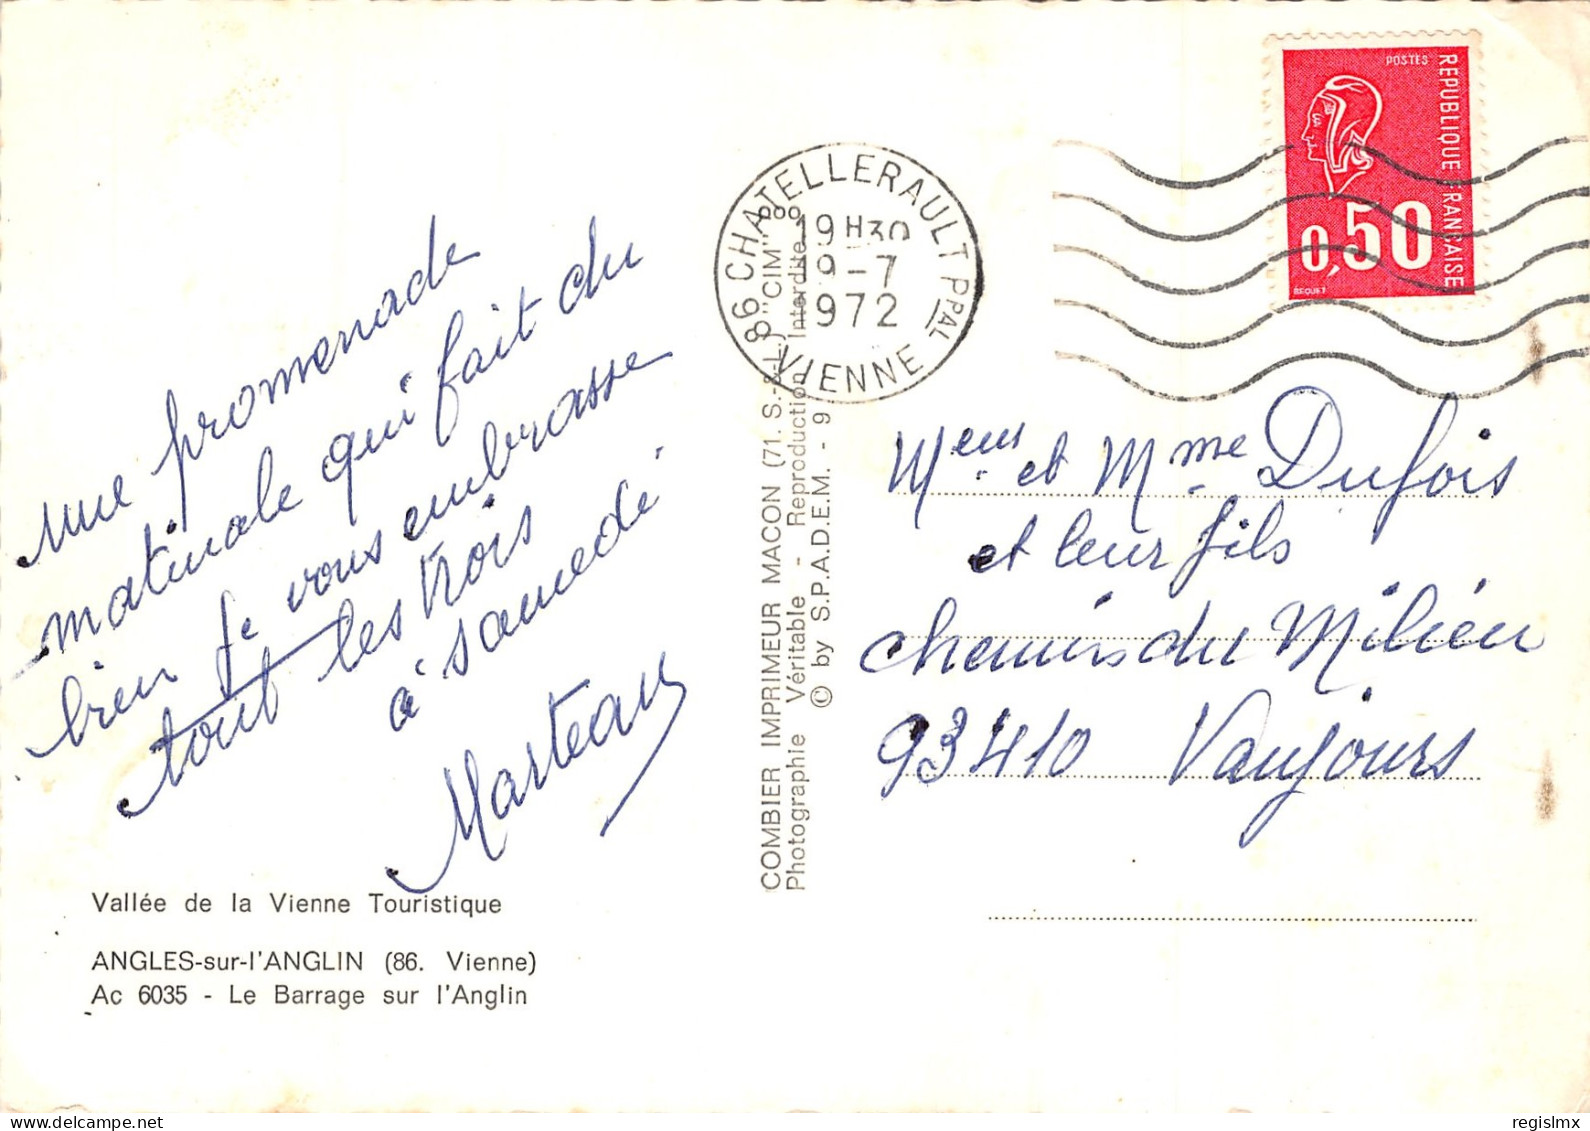 une promenade
matinale qui fait du
bien je vous embrasse
tout les trois
à samedi
Marteau
Vallée de la Vienne Touristique
ANGLES-sur-l'ANGLIN (86. Vienne)
Ac 6035 - Le Barrage sur l'Anglin
COMBIER IMPRIMEUR MACON (71. S.-&-L.) "CIM"
Photographie Véritable - Reproduction Interdite
© by S.P.A.D.E.M. - 9
86 CHATELLERAULT PPAL
19H30
19-7
1972
VIENNE
POSTES
REPUBLIQUE FRANCAISE
0,50
BEQUET
Meur et Mme Dufois
et leur fils
chemin du Milieu
93410 Vaujours
regislmx